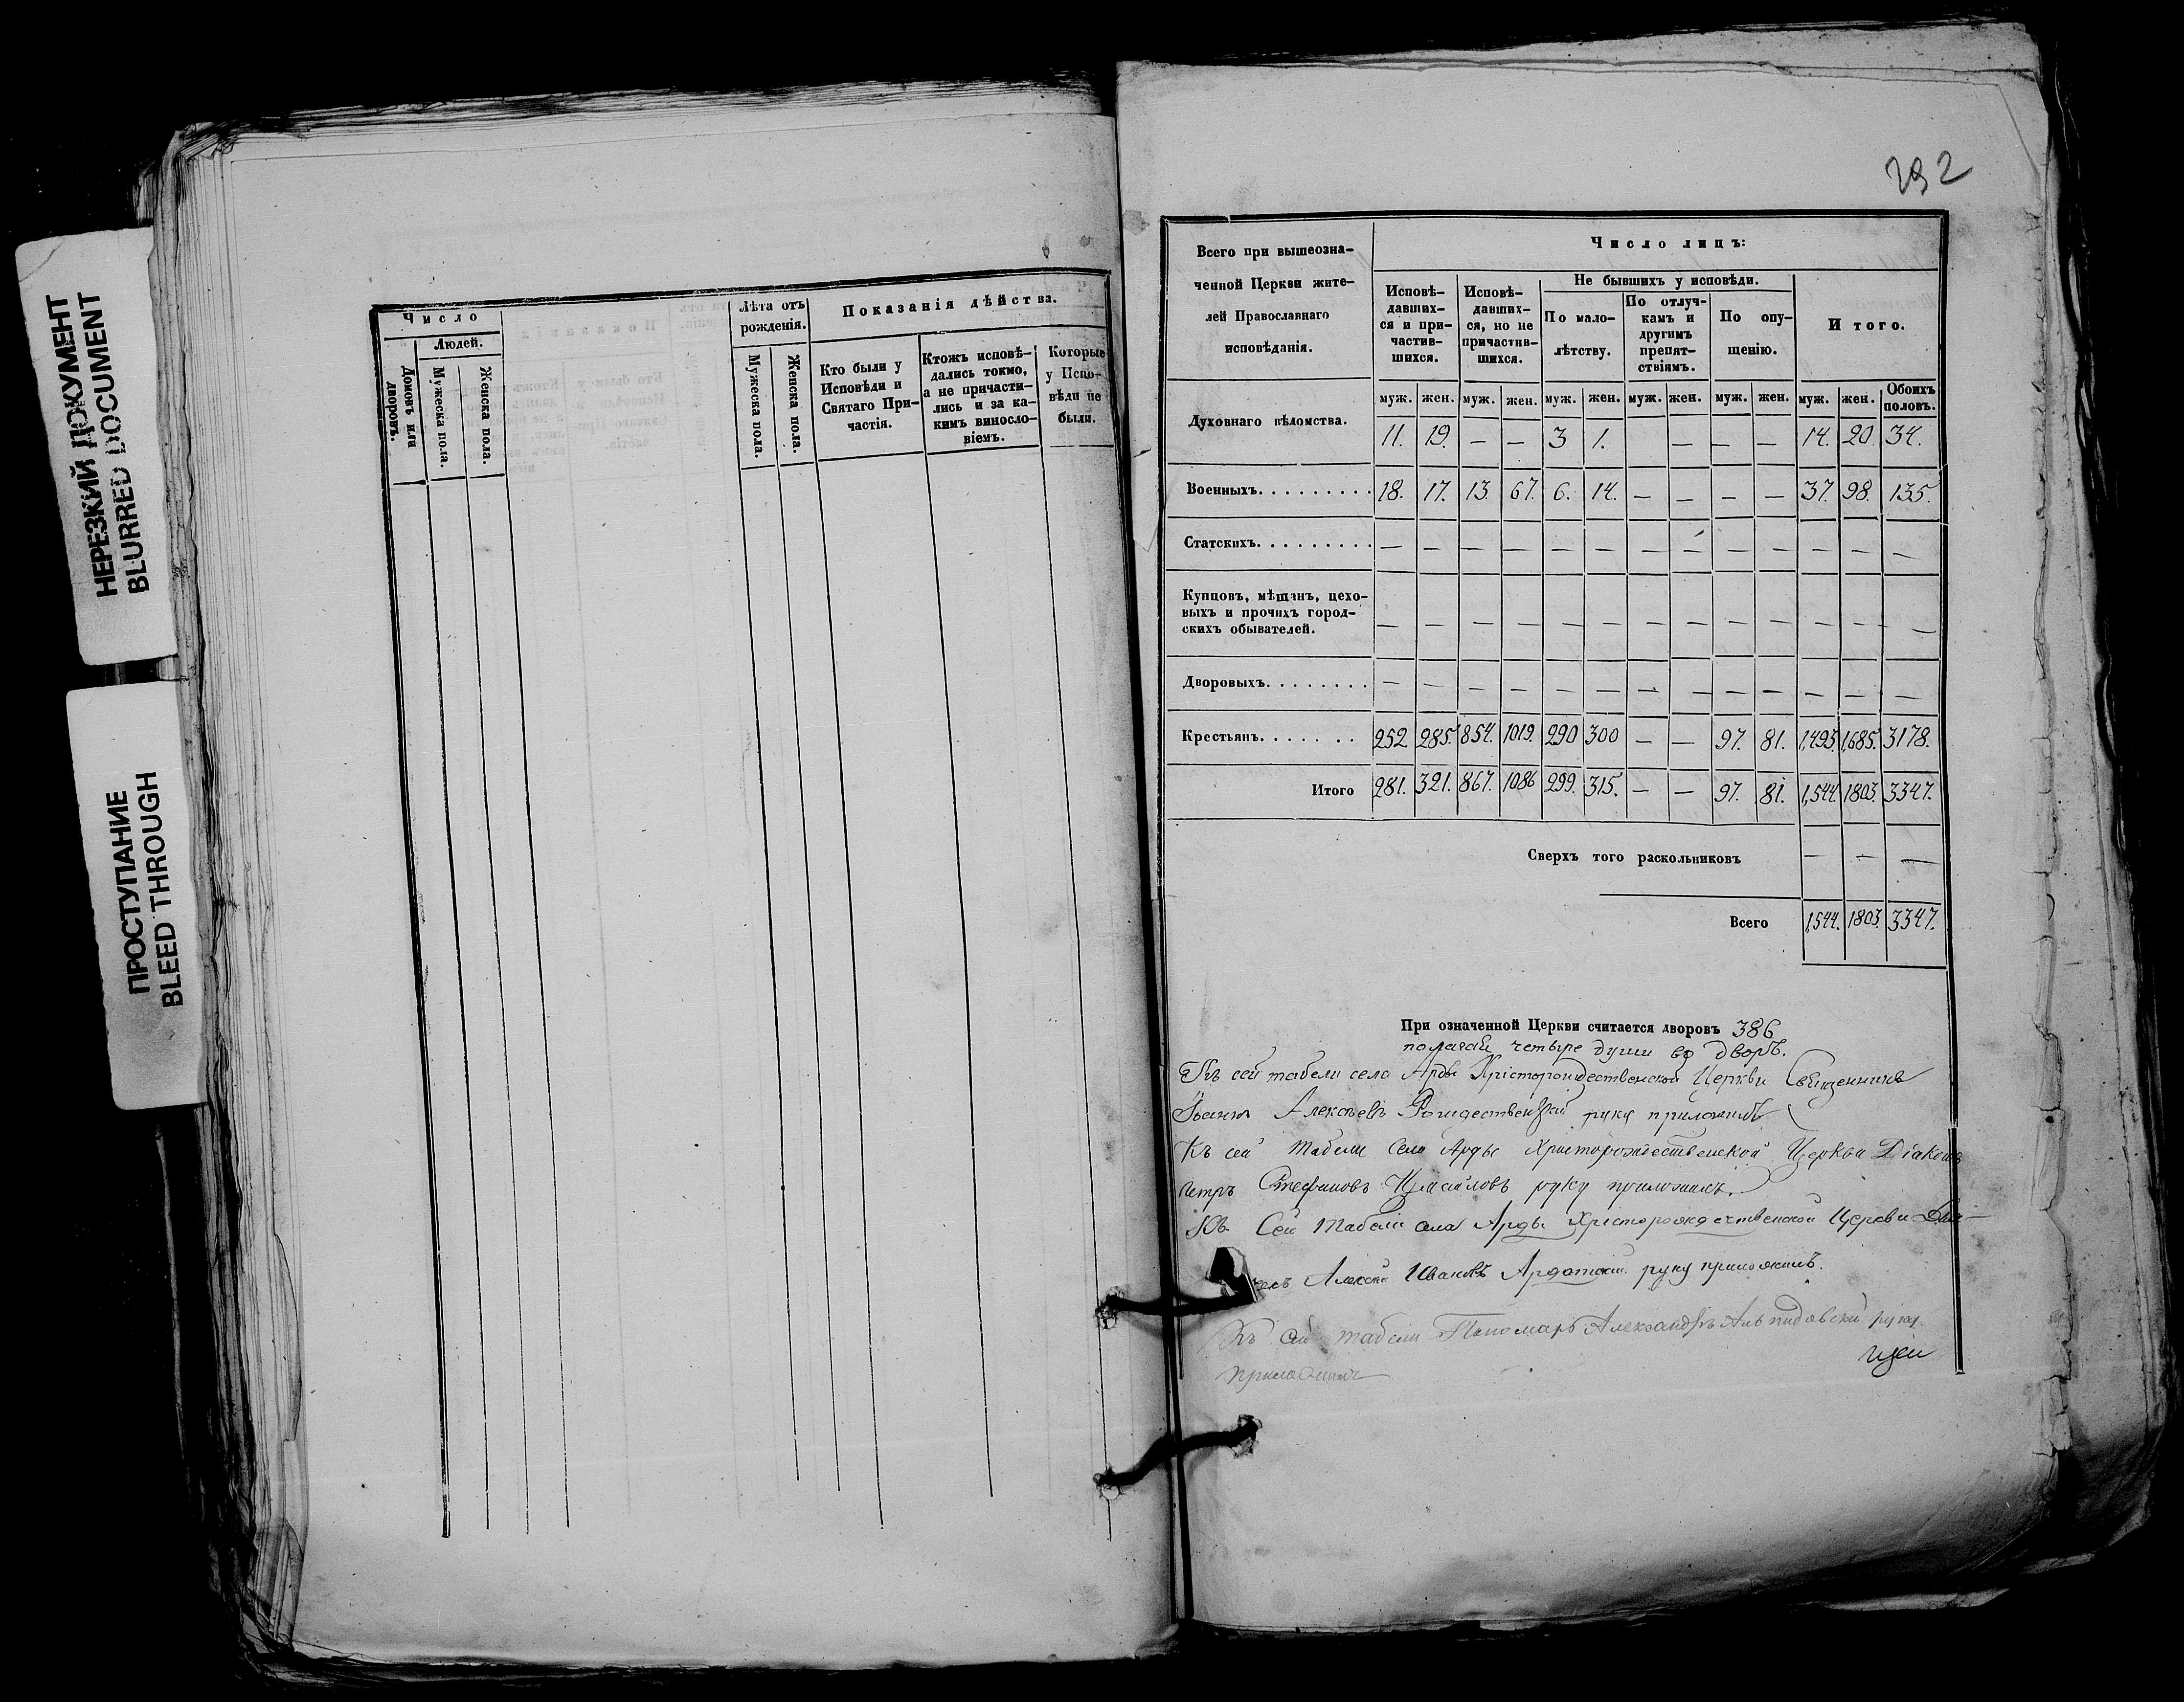 НЕРЕЗКИЙ ДОКУМЕНТ
BLURRED DOCUMENT
ПРОСТУПАНИЕ
BLEED THROUGH
Число
Людей.
Домовъ или дворовъ.
Мужеска пола.
Женска пола.
Лѣта отъ рожденія.
Мужеска пола.
Женска пола.
Показанія дѣйства.
Кто были у Исповѣди и Святаго Причастія.
Ктожъ исповѣдались токмо, а не причастились и за какимъ винословіемъ.
Которые у Исповѣди не были.
292
Всего при вышеозначенной Церкви жителей Православнаго исповѣданія.
Число лицъ:
Исповѣдавшихся и причастившихся.
Исповѣдавшихся, но не причастившихся.
Не бывшихъ у исповѣди.
По малолѣтству.
По отлучкамъ и другимъ препятствіямъ.
По опущенію.
Итого.
муж. жен. муж. жен. муж. жен. муж. жен. муж. жен. муж. жен. Обоихъ половъ.
Духовнаго вѣдомства. 11. 19. — — 3 1. — — — 14. 20. 34.
Военныхъ. . . . . . . . . 18. 17. 13. 67. 6. 14. — — — — 37. 98. 135.
Статскихъ. . . . . . . . . — — — — — — — — — — — — —
Купцовъ, мѣщанъ, цеховыхъ и прочихъ городскихъ обывателей. — — — — — — — — — — — — —
Дворовыхъ. . . . . . . . — — — — — — — — — — — — —
Крестьянъ. . . . . . . . 252 285. 854. 1019. 290 300 — — 97. 81. 1,493. 1,685. 3178.
Итого 281. 321. 867. 1086 299. 315. — — 97. 81. 1,544. 1803. 3347.
Сверхъ того раскольниковъ — — —
Всего 1,544. 1803. 3347.
При означенной Церкви считается дворовъ 386
полагая четыре души во дворѣ.
Къ сей табели села Арды Христорождественской Церкви Священникъ
Іоаннъ Алексѣевъ Рождественскій руку приложилъ
Къ сей табели села Арды Христорождественской Церкви Діаконъ
Петръ Стефановъ Измайловъ руку приложилъ.
Къ сей табели села Арды Христорождественской Церкви
Алексѣй Ивановъ Ардатскій руку приложилъ.
Къ сей табели Пономарь Александръ руку
приложилъ